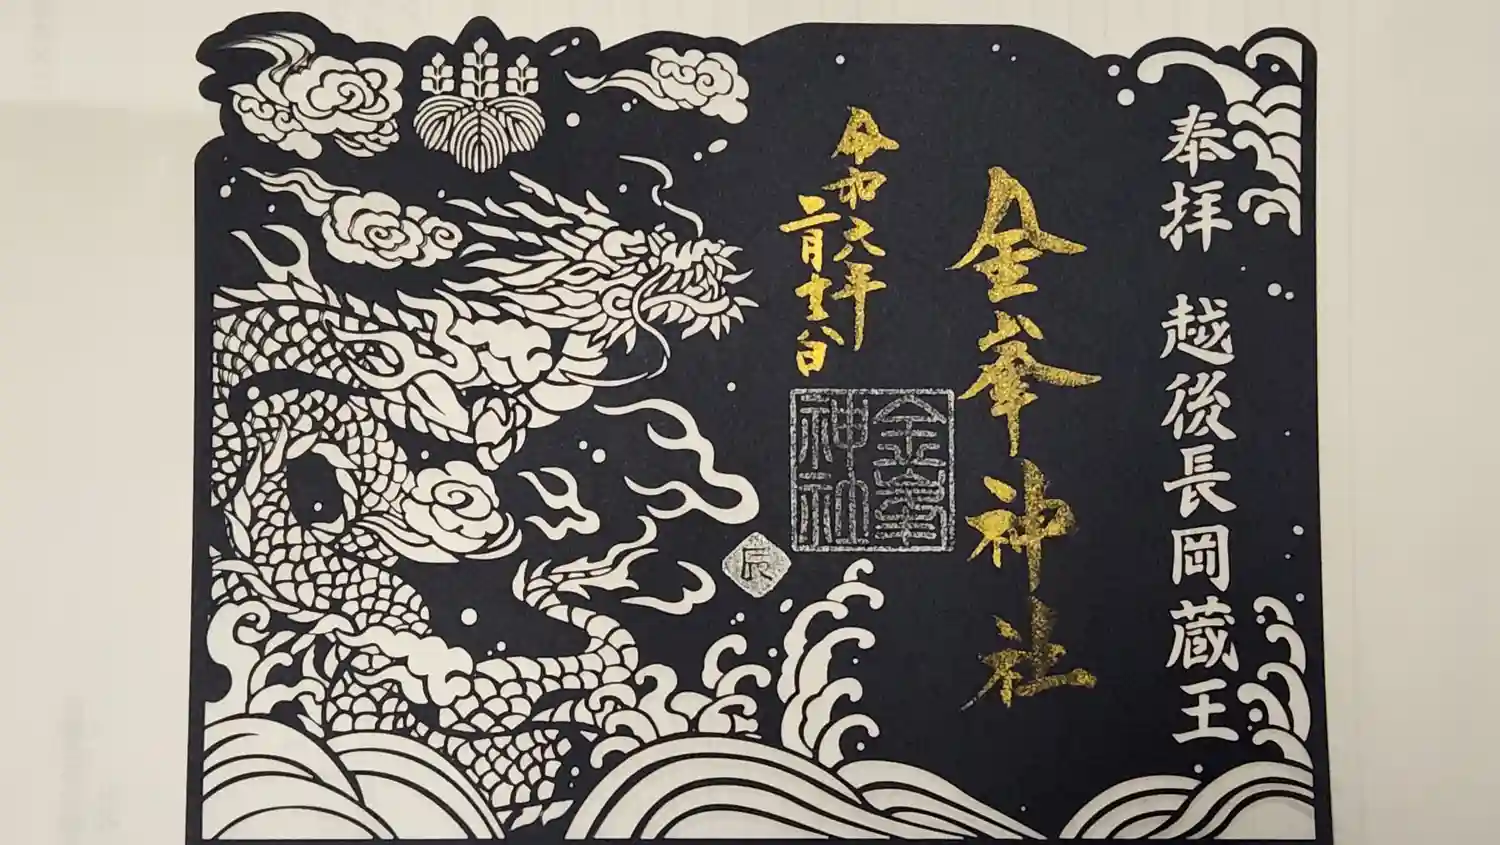 奉拝 越後長岡蔵王
金峯神社
令和六年
二月 日
金峯
神社
辰